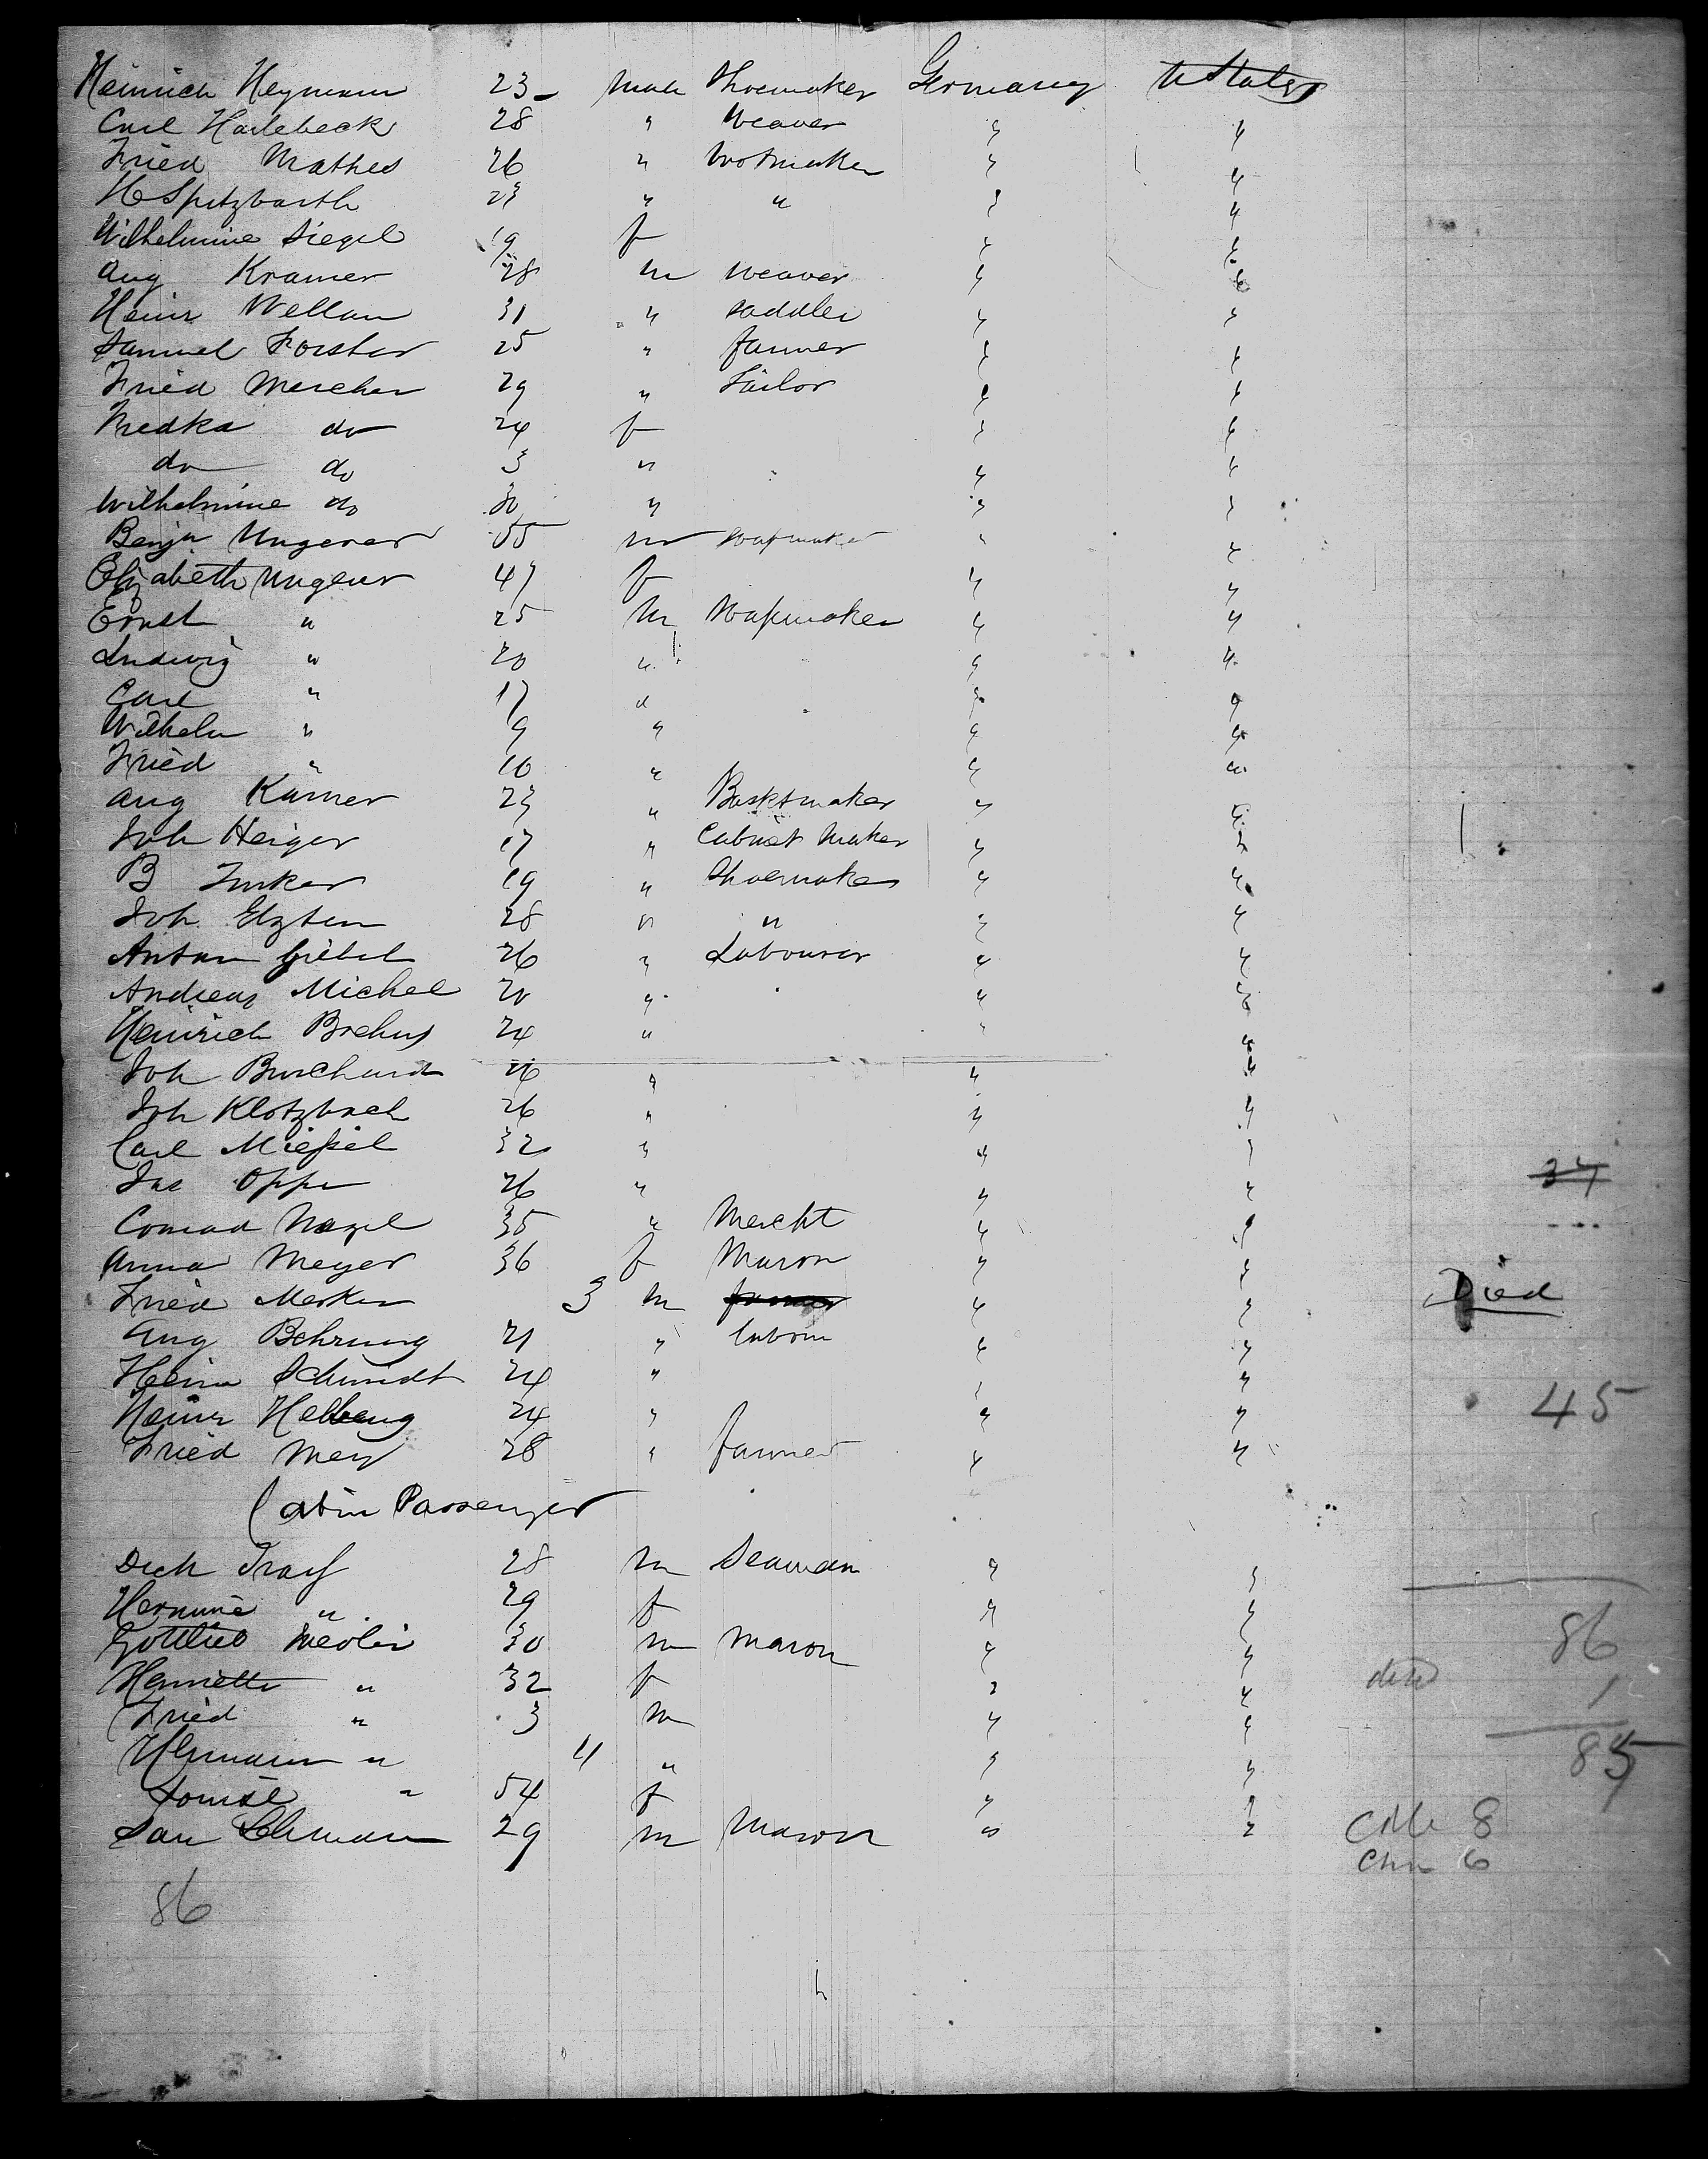 Heinrich Heymann 23 Male Shoemaker Germany U States
Carl Harlebeck 28 " Weaver " "
Fried Mathes 26 " bootmaker " "
H Spitzbarth 23 " " " "
Wilhelmine Siegel 19 f " "
Aug Kramer 28 m weaver " "
Heinr Wellau 31 " saddler " "
Samuel Forster 25 " farmer " "
Fried Mercher 29 " Tailor " "
Fredka do 24 f " "
do do 3 " " "
Wilhelmine do 30 " " "
Benjn Ungerer 55 m soapmaker " "
Elizabeth Ungerer 47 f " "
Ernst " 25 m soapmaker " "
Ludwig " 20 " " "
Carl " 17 " " "
Wilhelm " 9 " " "
Fried " 10 " " "
Aug Karner 23 " Basketmaker " "
Joh Heiger 17 " Cabinet Maker " "
B Junker 19 " Shoemaker " "
Joh 28 " " " "
Anton Giebel 26 " Labourer " "
Andreas Michel 20 " " "
Heinrich 24 " " "
Joh Burchardt 26 " " "
Joh Klotzbach 26 " " "
Carl 32 " " "
Oppe 26 " " "
Conrad Nagel 35 " Mercht " "
34
Anna Meyer 36 f Mason " "
Fried Merker 3 m farmer " " Died
Aug Behrung 21 " labour " "
Heinr Schmidt 24 " " "
Heinr Helberg 24 " " " 45
Fried Mey 28 " farmer " "
Cabin Passenger
28 m Seaman " "
Hermine " 29 f " "
Gottlieb 30 m mason " " 86
Henriette " 32 f " " died 1
Fried " 3 m " "
Hermann " 11 " " " 85
Louise " 54 f " "
Sam Lehmann 29 m Mason " " 8
6
86